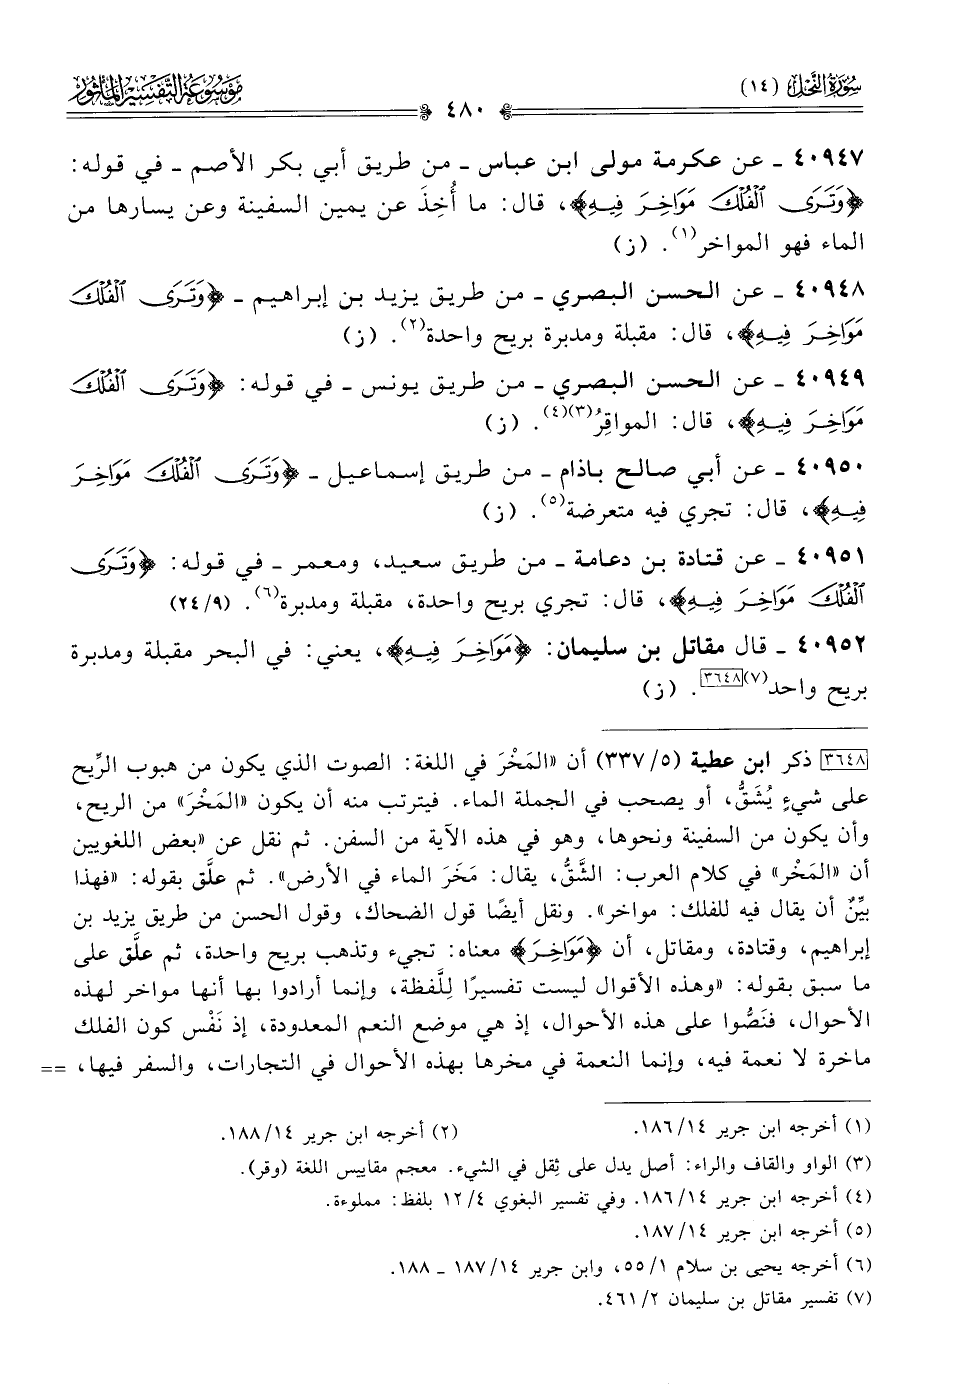 سُورَةُ النَّحْلِ (١٤)
٤٨٠
مَوْسُوعَةُ التَّفْسِيرِ المَأْثُورِ
٤٠٩٤٧ ـ عن عكرمة مولى ابن عباس ـ من طريق أبي بكر الأصم ـ في قوله:
﴿وَتَرَى ٱلْفُلْكَ مَوَاخِرَ فِيهِ﴾، قال: ما أُخِذَ عن يمين السفينة وعن يسارها من
الماء فهو المواخر(١). (ز)
٤٠٩٤٨ ـ عن الحسن البصري ـ من طريق يزيد بن إبراهيم ـ ﴿وَتَرَى ٱلْفُلْكَ
مَوَاخِرَ فِيهِ﴾، قال: مقبلة ومدبرة بريح واحدة(٢). (ز)
٤٠٩٤٩ ـ عن الحسن البصري ـ من طريق يونس ـ في قوله: ﴿وَتَرَى ٱلْفُلْكَ
مَوَاخِرَ فِيهِ﴾، قال: المواقِرُ(٣)(٤). (ز)
٤٠٩٥٠ ـ عن أبي صالح باذام ـ من طريق إسماعيل ـ ﴿وَتَرَى ٱلْفُلْكَ مَوَاخِرَ
فِيهِ﴾، قال: تجري فيه متعرضة(٥). (ز)
٤٠٩٥١ ـ عن قتادة بن دعامة ـ من طريق سعيد، ومعمر ـ في قوله: ﴿وَتَرَى
ٱلْفُلْكَ مَوَاخِرَ فِيهِ﴾، قال: تجري بريح واحدة، مقبلة ومدبرة(٦). (٢٤/٩)
٤٠٩٥٢ ـ قال مقاتل بن سليمان: ﴿مَوَاخِرَ فِيهِ﴾، يعني: في البحر مقبلة ومدبرة
بريح واحد(٧)[٣٦٤٨]. (ز)
[٣٦٤٨] ذكر ابن عطية (٣٣٧/٥) أن «المَخْرَ في اللغة: الصوت الذي يكون من هبوب الرِّيح
على شيءٍ يُشَقُّ، أو يصحب في الجملة الماء. فيترتب منه أن يكون «المَخْرَ» من الريح،
وأن يكون من السفينة ونحوها، وهو في هذه الآية من السفن. ثم نقل عن «بعض اللغويين
أن «المَخْر» في كلام العرب: الشَّقُّ، يقال: مَخَرَ الماء في الأرض». ثم علَّق بقوله: «فهذا
بيِّنٌ أن يقال فيه للفلك: مواخر». ونقل أيضًا قول الضحاك، وقول الحسن من طريق يزيد بن
إبراهيم، وقتادة، ومقاتل، أن ﴿مَوَاخِرَ﴾ معناه: تجيء وتذهب بريح واحدة، ثم علَّق على
ما سبق بقوله: «وهذه الأقوال ليست تفسيرًا لِلَّفظة، وإنما أرادوا بها أنها مواخر لهذه
الأحوال، فنَصُّوا على هذه الأحوال، إذ هي موضع النعم المعدودة، إذ نَفْس كون الفلك
ماخرة لا نعمة فيه، وإنما النعمة في مخرها بهذه الأحوال في التجارات، والسفر فيها، ==
(١) أخرجه ابن جرير ١٨٦/١٤.
(٢) أخرجه ابن جرير ١٨٨/١٤.
(٣) الواو والقاف والراء: أصل يدل على ثِقل في الشيء. معجم مقاييس اللغة (وقر).
(٤) أخرجه ابن جرير ١٨٦/١٤. وفي تفسير البغوي ١٢/٤ بلفظ: مملوءة.
(٥) أخرجه ابن جرير ١٨٧/١٤.
(٦) أخرجه يحيى بن سلام ٥٥/١، وابن جرير ١٨٧/١٤ ـ ١٨٨.
(٧) تفسير مقاتل بن سليمان ٤٦١/٢.